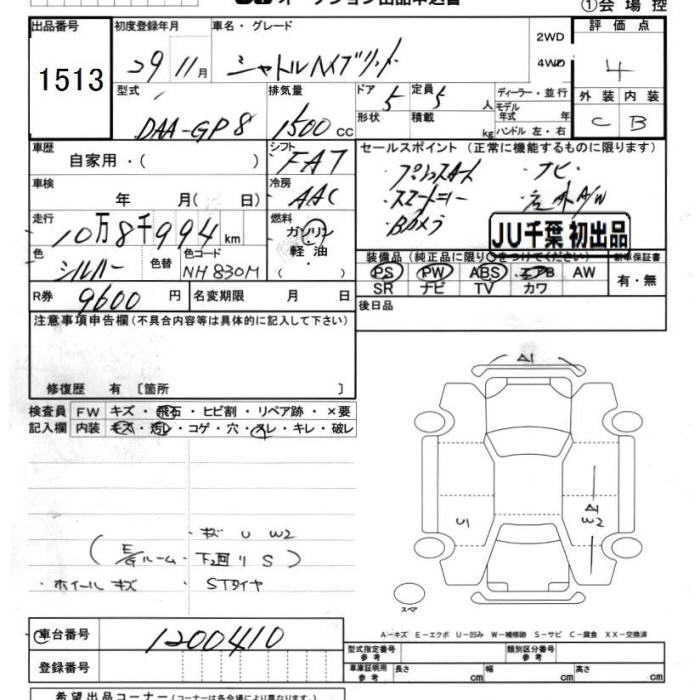 ①会場控
出品番号
1513
初度登録年月
29 11月
車名・グレード
シャトルハイブリッド
2WD
4WD
評価点
4
外装 内装
C B
型式
DAA-GP8
排気量
1500 cc
ドア
5
定員
5 人
形状
積載
kg
ディーラー・並行
モデル
年式 年
ハンドル 左・右
車歴
自家用・( )
シフト
FAT
車検
年 月( 日)
冷房
AAC
走行
10万8千994 km
燃料
ガソリン
軽油
( )
色
シルバー
色替
色コード
NH830M
R券
9600 円
名変期限 月 日
セールスポイント(正常に機能するものに限ります)
・プッシュスタート ・ナビ・
・スマートキー ・
・Bカメラ
JU千葉 初出品
装備品(純正品に限り○をつけてください)
新車保証書
PS PW ABS エアB AW
SR ナビ TV カワ
有・無
後日品
注意事項申告欄(不具合内容等は具体的に記入して下さい)
修復歴 有〔箇所 〕
検査員 FW キズ・飛石・ヒビ割・リペア跡・×要
記入欄 内装 キズ・汚レ・コゲ・穴・スレ・キレ・破レ
・キズ U W2
(E/Gルーム・下回り S)
・ホイールキズ ・STタイヤ
A1
U
A1
W2
スペア
A-キズ E-エクボ U-凹み W-補修跡 S-サビ C-腐食 XX-交換済
車台番号
1200410
登録番号
型式指定番号
参考
類別区分番号
参考
車庫証明用
参考
長さ cm 幅 cm 高さ cm
希望出品コーナー(コーナーは各会場により異なります)